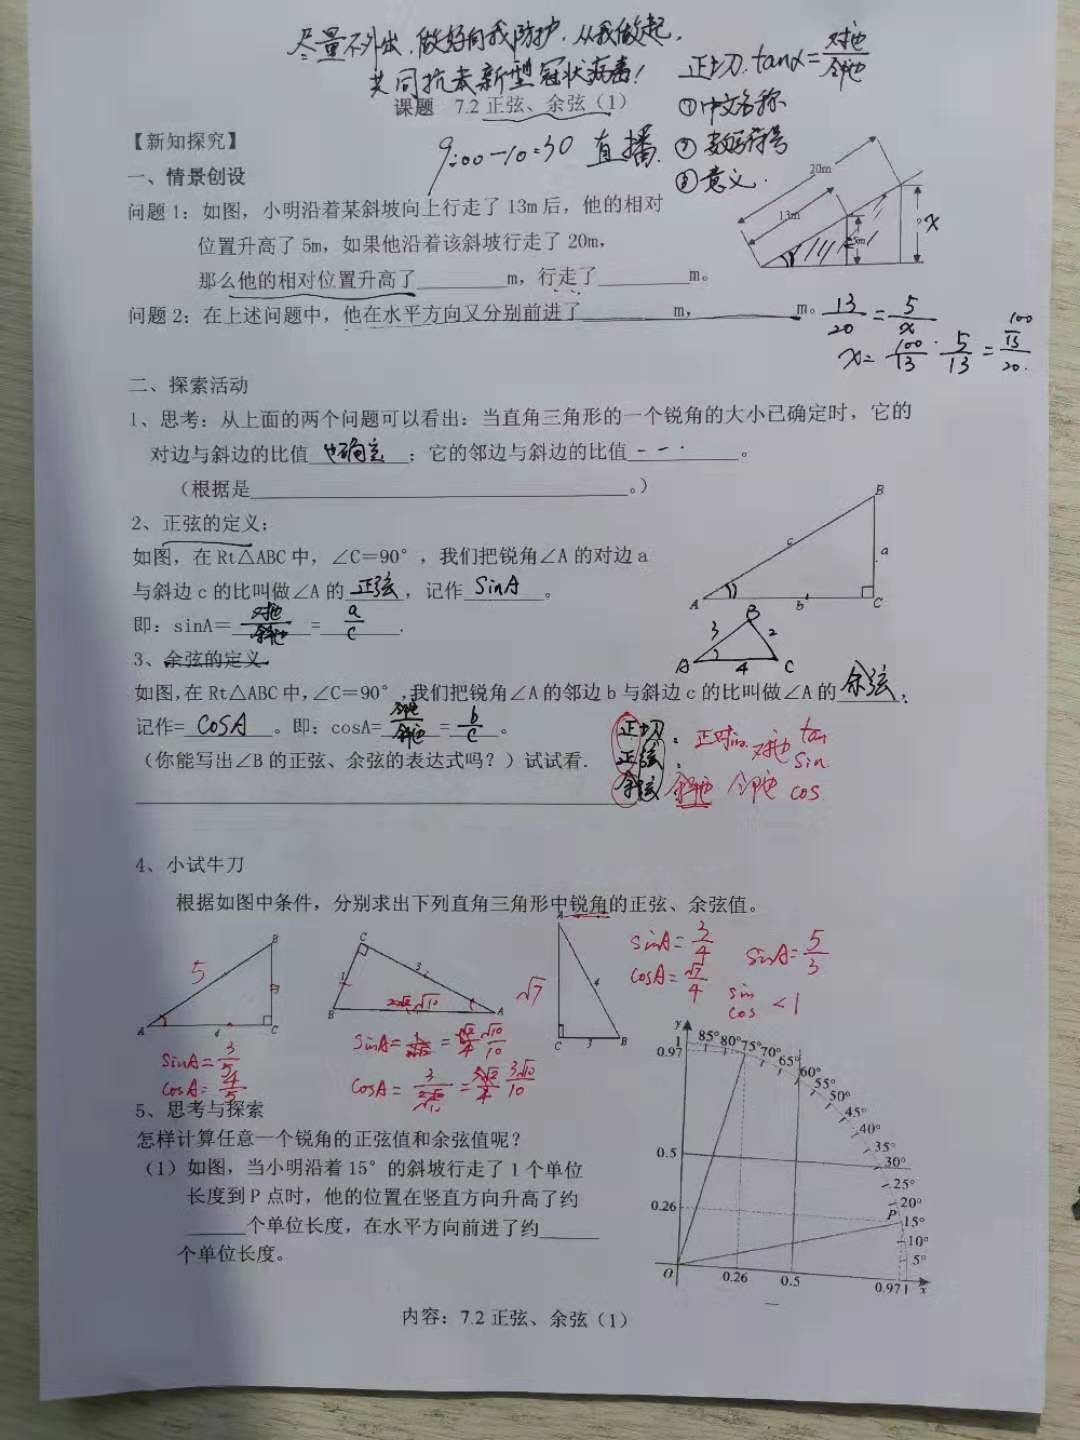 尽量不外出,做好自我防护,从我做起,
共同抗击新型冠状病毒!
正切.tanα=对边/邻边
①中文名称
②数学符号
③意义.
课题 7.2 正弦、余弦（1）
9:00-10:30 直播.
【新知探究】
一、情景创设
问题1：如图，小明沿着某斜坡向上行走了13m后，他的相对
位置升高了5m，如果他沿着该斜坡行走了20m，
那么他的相对位置升高了________m，行走了________m。
问题2：在上述问题中，他在水平方向又分别前进了________m，________m。
20m
13m
5m
x
13/20=5/x
x=100/13·5/13=
二、探索活动
1、思考：从上面的两个问题可以看出：当直角三角形的一个锐角的大小已确定时，它的
对边与斜边的比值 也确定 ；它的邻边与斜边的比值________。
（根据是________________。）
2、正弦的定义：
如图，在Rt△ABC中，∠C=90°，我们把锐角∠A的对边a
与斜边c的比叫做∠A的 正弦 ，记作 sinA 。
即：sinA= 对边/斜边 = a/c .
B
c
a
A
b
C
B
3
2
A
4
C
3、余弦的定义
如图,在Rt△ABC中,∠C=90°,我们把锐角∠A的邻边b与斜边c的比叫做∠A的 余弦 ,
记作= cosA 。即：cosA= 邻边/斜边 = b/c 。
（你能写出∠B的正弦、余弦的表达式吗？）试试看.
正切
正弦
余弦
对边
tan
sin
斜边 邻边 cos
4、小试牛刀
根据如图中条件，分别求出下列直角三角形中锐角的正弦、余弦值。
B
5
3
A
4
C
sinA=3/5
cosA=4/5
C
1
3
B
√10
A
sinA= √10/10
cosA= 3√10/10
A
√7
4
C
3
B
sinA=3/4
cosA=√7/4
sinA=5/3
sin
cos <1
5、思考与探索
怎样计算任意一个锐角的正弦值和余弦值呢？
（1）如图，当小明沿着15°的斜坡行走了1个单位
长度到P点时，他的位置在竖直方向升高了约
______个单位长度，在水平方向前进了约______
个单位长度。
y
1
0.97
0.5
0.26
O
0.26
0.5
0.97 1
x
85° 80° 75° 70° 65° 60° 55° 50° 45° 40° 35° 30° 25° 20° 15° 10° 5°
P
内容：7.2 正弦、余弦（1）